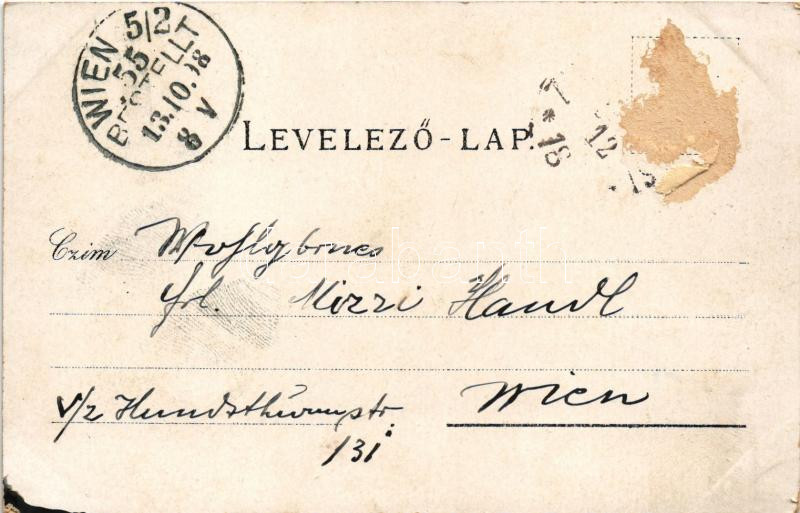 WIEN 5/2
55
BESTELLT
13.10.98
8 V
LEVELEZŐ-LAP.
* 18
12
Czim Wohlgbornes
Frl. Mizzi Handl
V/2 Hundsthurmstr.
131
Wien